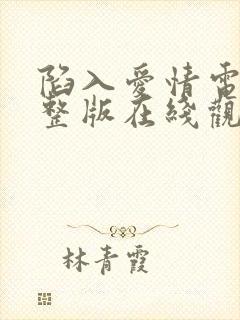 陷入愛情電
整版在綫觀
林青霞